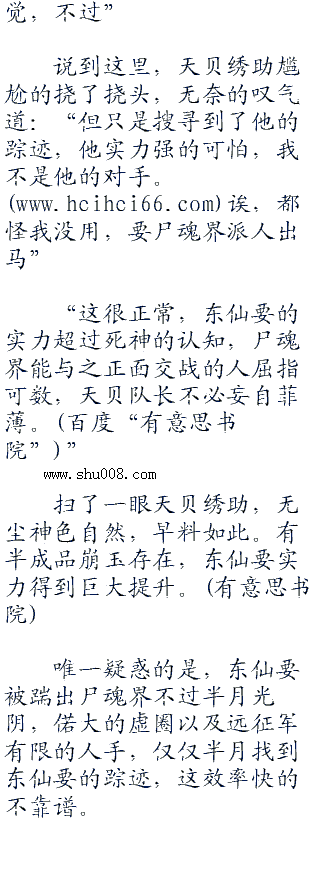 觉，不过”
说到这里，天贝绣助尴
尬的挠了挠头，无奈的叹气
道：“但只是搜寻到了他的
踪迹，他实力强的可怕，我
不是他的对手。
(www.hcihci66.com)诶，都
怪我没用，要尸魂界派人出
马”
“这很正常，东仙要的
实力超过死神的认知，尸魂
界能与之正面交战的人屈指
可数，天贝队长不必妄自菲
薄。(百度“有意思书
院”)”
www.shu008.com
扫了一眼天贝绣助，无
尘神色自然，早料如此。有
半成品崩玉存在，东仙要实
力得到巨大提升。(有意思书
院)
唯一疑惑的是，东仙要
被踹出尸魂界不过半月光
阴，偌大的虚圈以及远征军
有限的人手，仅仅半月找到
东仙要的踪迹，这效率快的
不靠谱。